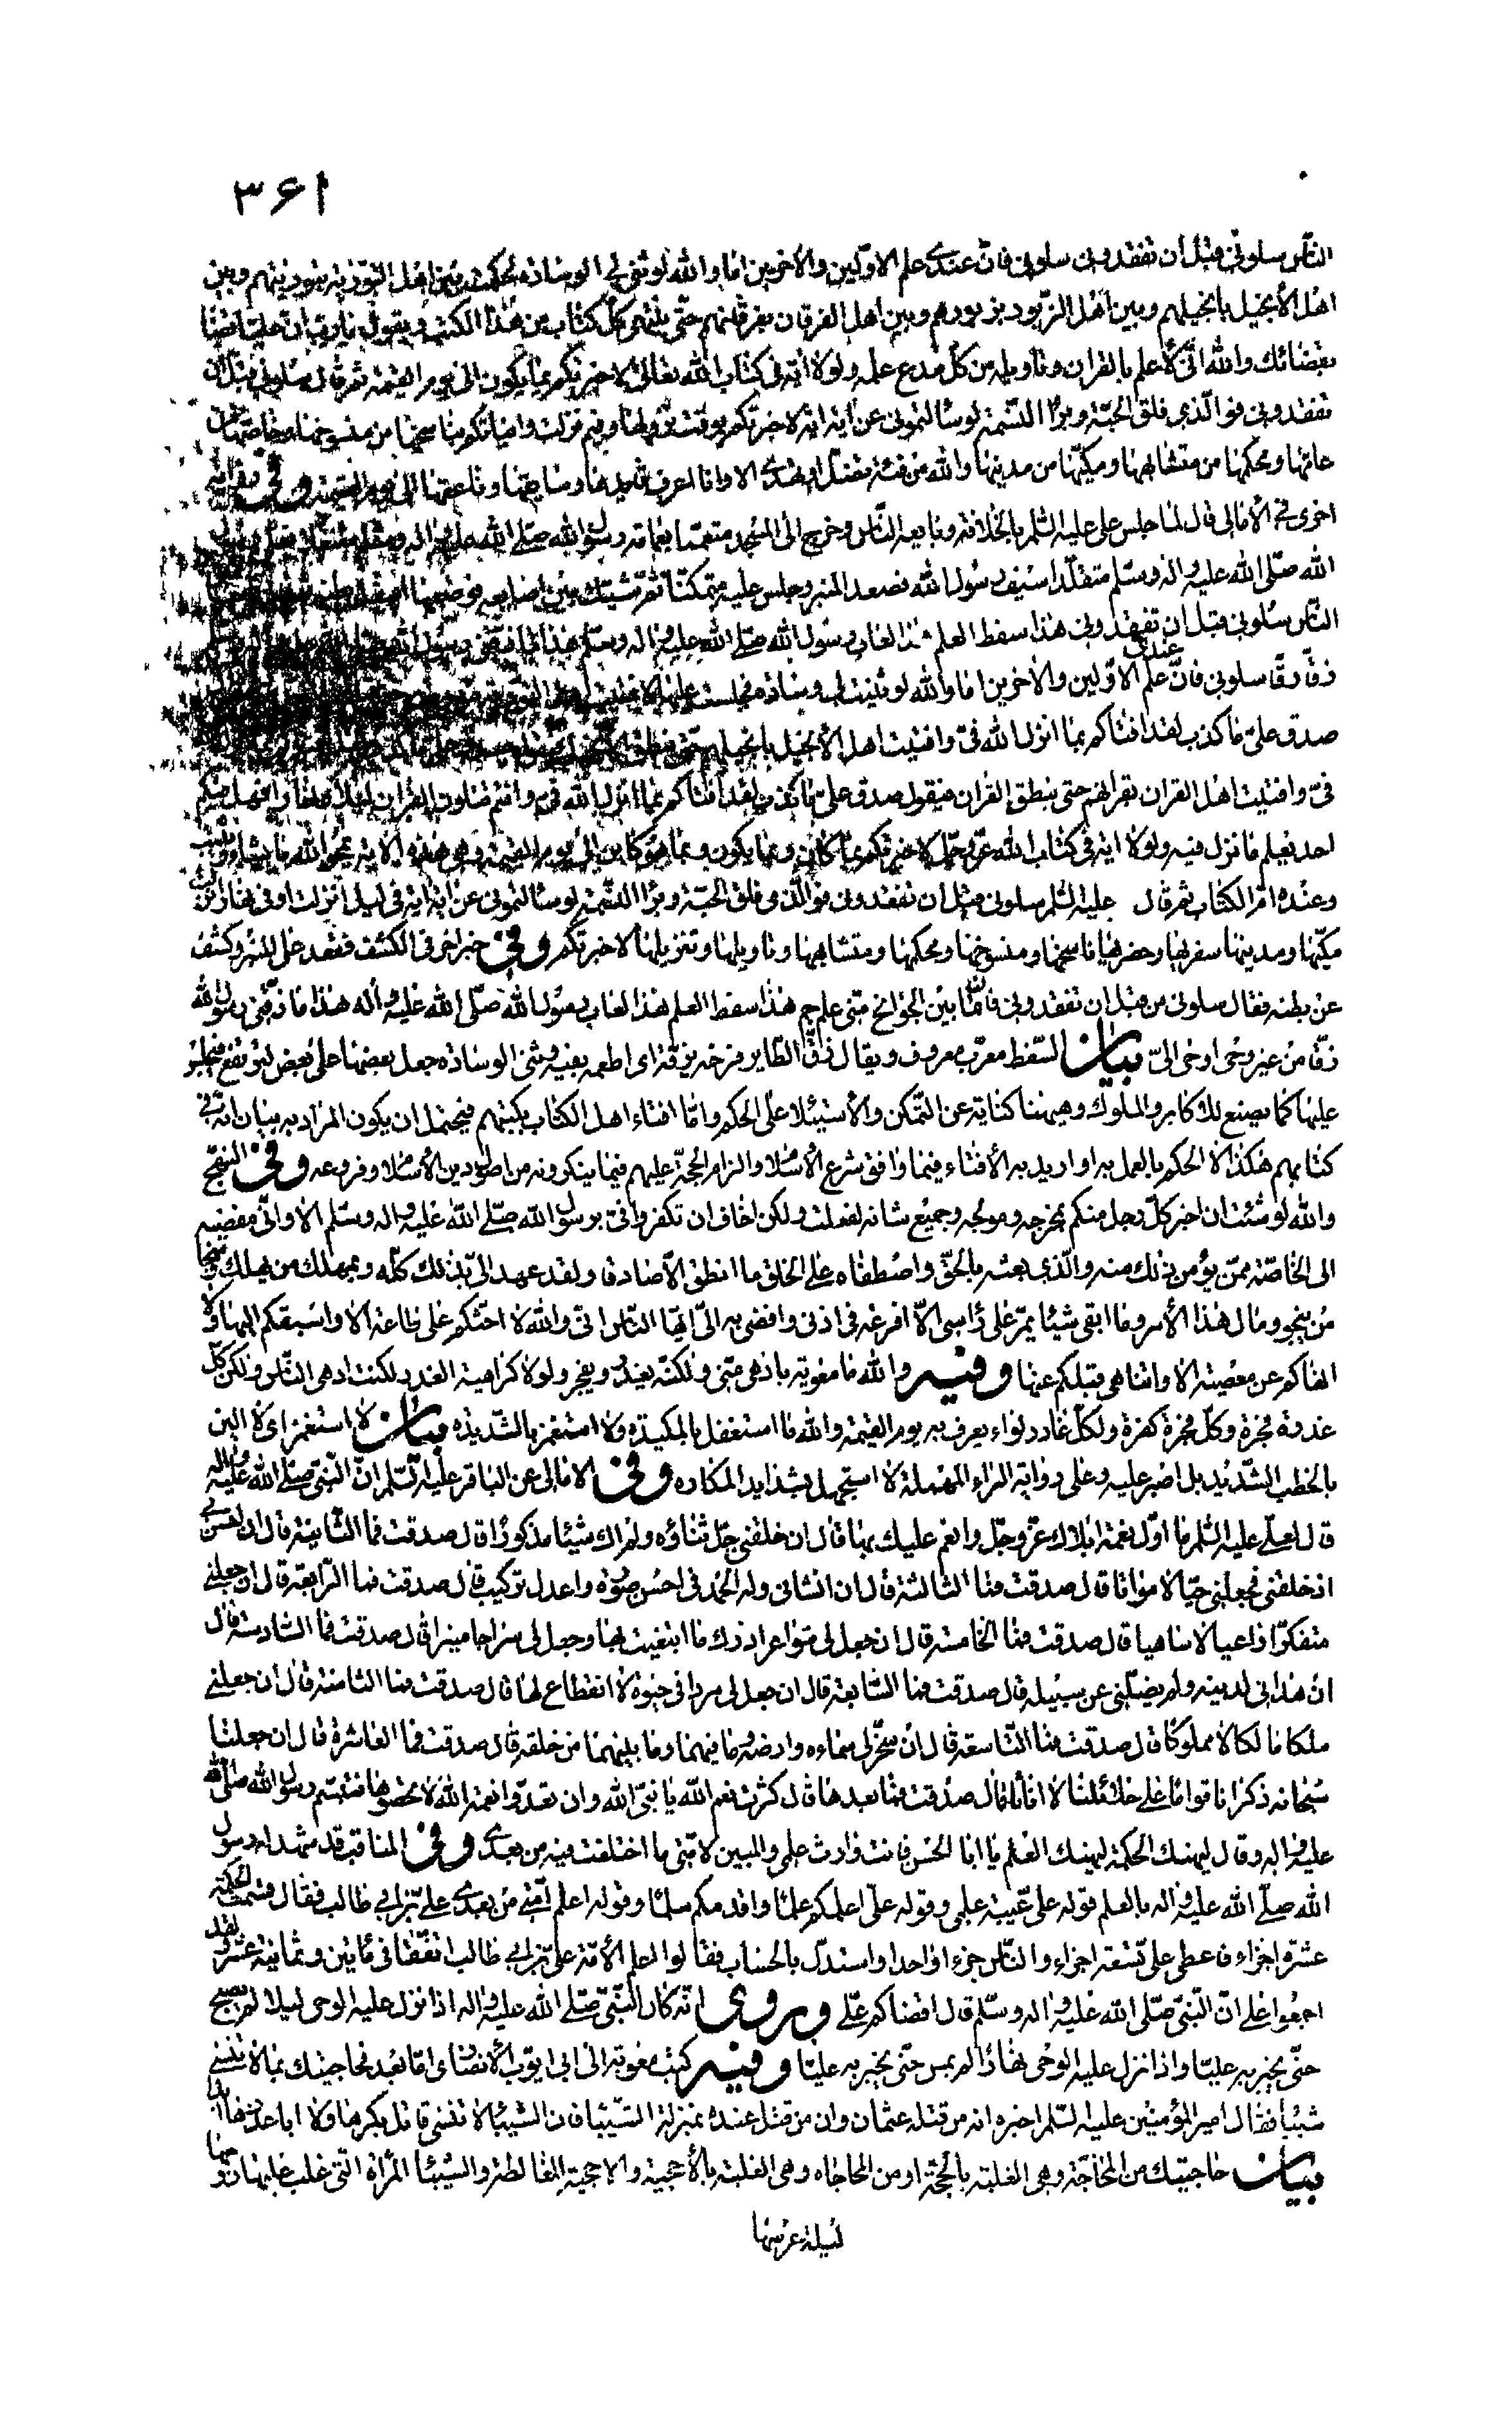 ٣۶١
الناس سلونی قبل ان تفقدونی سلونی فان عندی علم الاولین والاخرین اما والله لو ثنی لی الوسادة لحکمت بین اهل التوریة بتوریتهم وبین
اهل الانجیل بانجیلهم وبین اهل الزبور بزبورهم وبین اهل الفرقان بفرقانهم حتی ینتهی کل کتاب من هذا الکتب ویقول یا رب ان علیا قضی
بقضائك والله انی لاعلم بالقران وتاویله من کل مدع علمه ولولا ایة فی کتاب الله تعالی لاخبرتکم بما یکون الی یوم القیمة ثم قال سلونی قبل ان
تفقدونی فو الذی فلق الحبة وبرا النسمة لو سالتمونی عن ایة ایة لاخبرتکم بوقت نزولها وفیم نزلت وانباتکم بناسخها من منسوخها وخاصها من
عامها ومحکمها من متشابهها ومکیها من مدنیها والله ما من فئة تضل او تهدی الا وانا اعرف قایدها وسایقها وناعقها الی یوم القیمة وفی روایة
اخری فی الامالی قال لما جلس علی علیه السلم بالخلافة وبایعه الناس وخرج الی المسجد متعمما بعمامة رسول الله صلی الله علیه واله
الله صلی الله علیه واله وسلم متقلدا سیف رسول الله فصعد المنبر وجلس علیه متمکنا ثم شبك بین اصابعه فوضعها
الناس سلونی قبل ان تفقدونی هذا سفط العلم هذا لعاب رسول الله صلی الله علیه واله وسلم هذا ما زقنی رسول الله
زقا زقا سلونی فان عندی علم الاولین والاخرین اما والله لو ثنیت لی وسادة فجلست علیها لافتیت اهل التوریة
صدق علی ما کذب لقد افتاکم بما انزل الله فی وافتیت اهل الانجیل بانجیلهم حتی ینطق الانجیل
فی وافتیت اهل القران بقرانهم حتی ینطق القران فیقول صدق علی ما کذب لقد افتاکم بما انزل الله فی وانتم تتلون القران لیلا ونهارا فهل فیکم
احد یعلم ما نزل فیه ولولا ایة فی کتاب الله عز وجل لاخبرتکم بما کان وبما یکون وبما هو کاین الی یوم القیمة وهی هذه الایة یمحو الله ما یشاء ویثبت
وعنده ام الکتاب ثم قال علیه السلم سلونی قبل ان تفقدونی فو الذی فلق الحبة وبرا النسمة لو سالتمونی عن ایة ایة فی لیل انزلت او فی نهار انزلت
مکیها ومدنیها سفریها وحضریها ناسخها ومنسوخها ومحکمها ومتشابهها وتاویلها وتنزیلها لاخبرتکم وفی خبر اخر فی الکشف فقعد علی المنبر وکشف
عن بطنه فقال سلونی من قبل ان تفقدونی فانما بین الجوانح منی علم جم هذا سفط العلم هذا لعاب رسول الله صلی الله علیه واله هذا ما زقنی رسول الله
زقا من غیر وحی اوحی الی بیان السفط معرب معروف ویقال زق الطایر فرخه یزقه ای اطعمه بفیه وثنی الوسادة جعل بعضها علی بعض لیرتفع فیجلس
علیها کما یصنع للاکابر والملوك وهیهنا کنایة عن التمکن والاستیلاء علی الحکم واما افتاء اهل الکتاب بکتبهم فیحتمل ان یکون المراد به بیان انه فی
کتابهم هکذا لا الحکم بالعمل به او ارید به الافتاء فیما وافق شرع الاسلام والزام الحجة علیهم فیما ینکرونه من اصول دین الاسلام وفروعه وفی النهج
والله لو شئت ان اخبر کل رجل منکم بمخرجه ومولجه وجمیع شانه لفعلت ولکن اخاف ان تکفروا فی برسول الله صلی الله علیه واله وسلم الا وانی مفضیه
الی الخاصة ممن یؤمن ذلك منه والذی بعثه بالحق واصطفاه علی الخلق ما انطق الا صادقا ولقد عهد الی بذلك کله وبمهلك من یهلك ومنجا
من ینجو ومال هذا الامر وما ابقی شیئا یمر علی راسی الا افرغه فی اذنی وافضی به الی ایها الناس انی والله لا احثکم علی طاعة الا واسبقکم الیها ولا
انهاکم عن معصیة الا واتناهی قبلکم عنها وفیه والله ما معویة بادهی منی ولکنه یغدر ویفجر ولولا کراهیة الغدر لکنت ادهی الناس ولکن کل
غدرة فجرة وکل فجرة کفرة ولکل غادر لواء یعرف به یوم القیمة والله ما استغفل بالمکیدة ولا استغمز بالشدیدة بیان لا استغمز ای لا الین
بالخطب الشدید بل اصبر علیه وعلی روایة الراء المهملة لا استجهل بشداید المکاره وفی الامالی عن الباقر علیه السلم ان النبی صلی الله علیه واله
قال لعلی علیه السلم ما اول نعمة ابلاك عز وجل وانعم علیك بها قال ان خلقنی جل ثناؤه ولم اك شیئا مذکورا قال صدقت فما الثانیة قال ان احسن بی
اذ خلقنی فجعلنی حیا لا مواتا قال صدقت فما الثالثة قال ان انشانی وله الحمد فی احسن صورة واعدل ترکیب قال صدقت فما الرابعة قال ان جعلنی
متفکرا واعیا لا ساهیا قال صدقت فما الخامسة قال ان جعل لی شواعر ادرك ما ابتغیت بها وجعل لی سراجا منیرا قال صدقت فما السادسة قال
ان هدانی لدینه ولم یضلنی عن سبیله قال صدقت فما السابعة قال ان جعل لی مردا فی حیوة لا انقطاع لها قال صدقت فما الثامنة قال ان جعلنی
ملکا مالکا لا مملوکا قال صدقت فما التاسعة قال ان سخر لی سماءه وارضه وما فیهما وما بینهما من خلقه قال صدقت فما العاشرة قال ان جعلنا
سبحانه ذکرانا قواما علی حلائلنا لا اناثا قال صدقت فما بعدها قال کثرت نعم الله یا نبی الله وان تعدوا نعمة الله لا تحصوها فتبسم رسول الله صلی الله
علیه واله وقال لیهنك الحکمة لیهنك العلم یا ابا الحسن فانت وارث علمی والمبین لامتی ما اختلفت فیه من بعدی وفی المناقب قد شهد له رسول
الله صلی الله علیه واله بالعلم قوله علی عیبة علمی وقوله علی اعلمکم علما واقدمکم سلما وقوله اعلم امتی من بعدی علی بن ابی طالب فقال قسمت الحکمة
عشرة اجزاء فاعطی علی تسعة اجزاء والناس جزءا واحدا واستدل بالحساب فقالوا اعلم الامة علی بن ابی طالب اتفقا فی مائتین وثمانیة عشر ولقد
اجمعوا علی ان النبی صلی الله علیه واله وسلم قال اقضاکم علی وروی انه کان النبی صلی الله علیه واله اذا نزل علیه الوحی لیلا لم یصبح
حتی یخبر به علیا واذا نزل علیه الوحی نهارا لم یمس حتی یخبر به علیا وفیه کتب معویة الی ابی ایوب الانصاری اما بعد فحاجیتك بما لا تنسی
شیباء فقال امیر المؤمنین علیه السلم اخبره انه من قتلة عثمان وان من قتل عنده بمنزلة الشیباء فان الشیباء لا تنسی قاتل بکرها ولا ابا عذرها ابدا
بیان حاجیتك من المحاجة وهی الغلبة بالحجة او من المحاجاه وهی الغلبة بالاحجیة والاحجیة المغالطة والشیباء المراة التی غلب علیها زوجها
لیلة عرسها